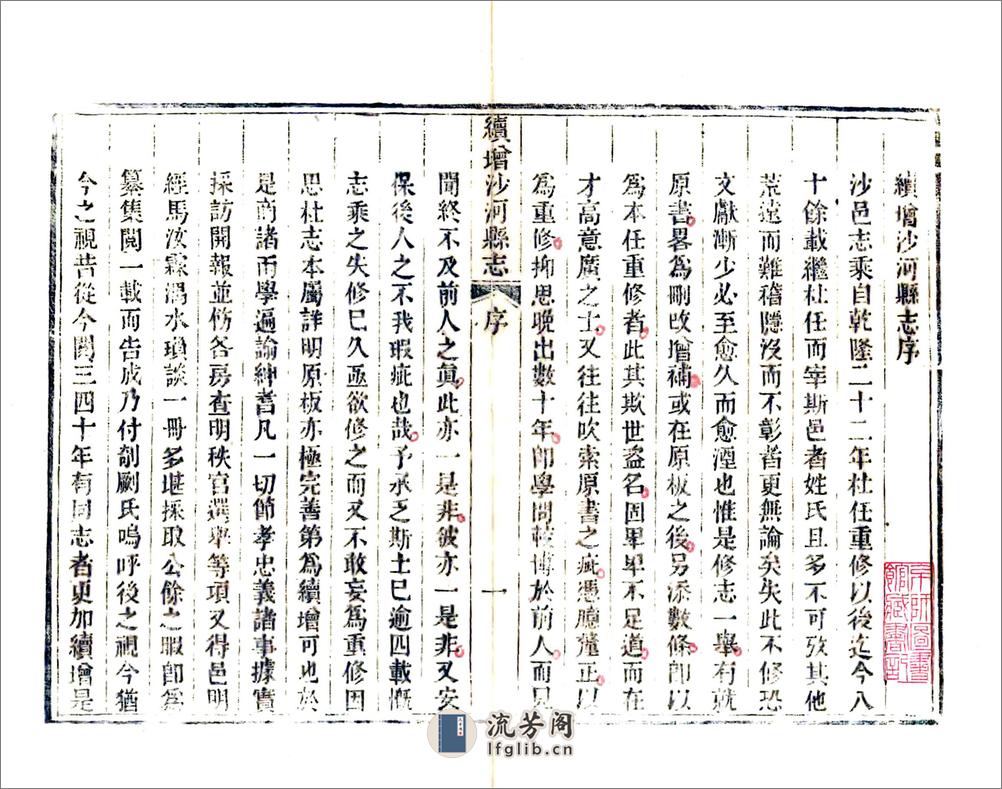 續增沙河縣志序
沙邑志乘自乾隆二十二年杜任重修以後迄今八
十餘載繼杜任而宰斯邑者姓氏且多不可攷其他
荒遠而難稽隱沒而不彰者更無論矣失此不修恐
文獻漸少必至愈久而愈湮也惟是修志一舉有就
原書畧為刪改增補或在原板之後另添數條即以
為本任重修者此其欺世盗名固卑卑不足道而在
才高意廣之士又往往吹索原書之疵憑臆釐正以
為重修抑思晚出數十年即學問較博於前人而見
續增沙河縣志
序
一
聞終不及前人之真此亦一是非彼亦一是非又安
保後人之不我瑕疵也哉予承乏斯土已逾四載慨
志乘之失修已久亟欲修之而又不敢妄為重修因
思杜志本屬詳明原板亦極完善第為續增可也於
是商諸兩學遍諭紳耆凡一切節孝忠義諸事據實
採訪開報並飭各房查明秩官選舉等項又得邑明
經馬汝霖湡水瑣談一冊多堪採取公餘之暇即為
纂集閱一載而告成乃付剞劂氏嗚呼後之視今猶
今之視昔從今閱三四十年有同志者更加續增是
流芳阁
lfglib.cn